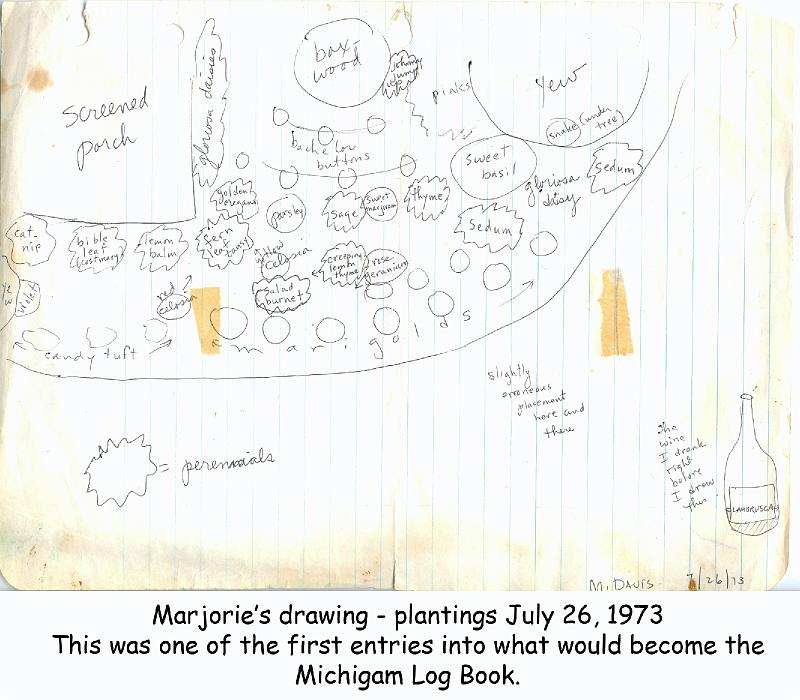 screened
porch
gloriosa daisies
box
wood
johnny
jump
ups
pinks
yew
snake (under
tree)
bachelor
buttons
sweet
basil
gloriosa
daisy
sedum
golden
oregano
parsley
sage
sweet
marjoram
thyme
sedum
cat-
nip
bible
leaf
(costmary)
lemon
balm
fern
leaf
tansy
yellow
celosia
creeping
lemon
thyme
rose
geranium
ye
w
violet
red
celosia
salad
burnet
candy tuft
marigolds
slightly
erroneous
placement
here and
there
the
wine
I drank
right
before
I drew
this
LAMBRUSCA
= perennials
M. DAVIS 7/26/73
Marjorie's drawing - plantings July 26, 1973
This was one of the first entries into what would become the
Michigam Log Book.